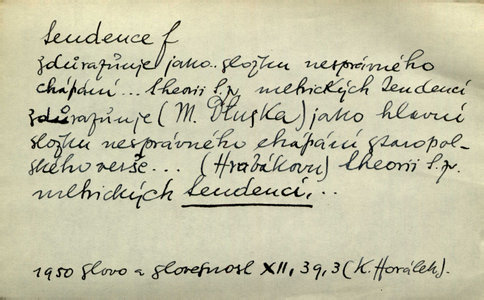 tendence f
zdůrazňuje jako složku nesprávného
chápání... theorii t.zv. metrických tendencí
zdůrazňuje (M. Dłuska) jako hlavní
složku nesprávného chápání staropol-
ského verše... (Hrabákovu) theorii t.zv.
metrických tendencí...
1950 Slovo a slovesnost XII, 39, 3 (K. Horálek).